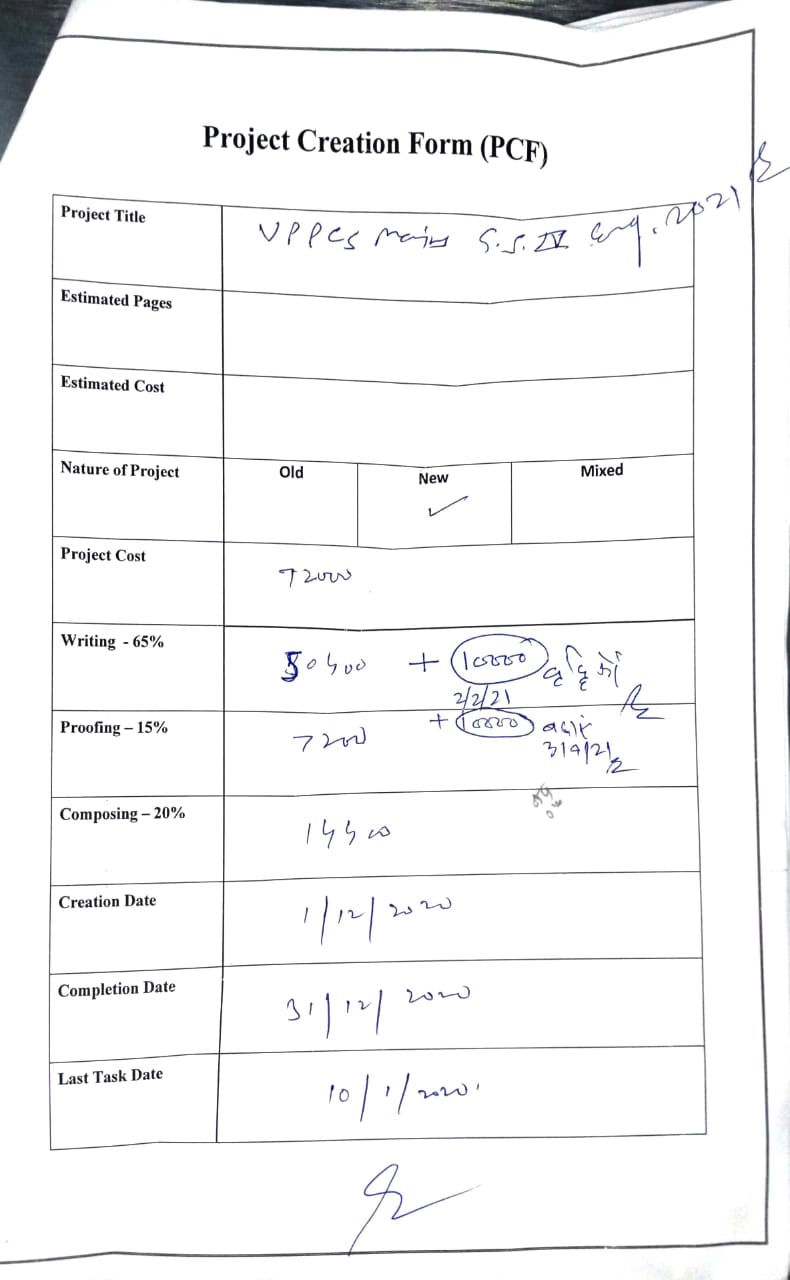 Project Creation Form (PCF)
Project Title UPPCS Mains G.S. IV Eng. 2021
Estimated Pages
Estimated Cost
Nature of Project Old New Mixed
✓
Project Cost 72000
Writing - 65% 50400 + 10000
2/2/21
Proofing – 15% 7200 + 10000
Composing – 20% 14400
Creation Date 1/12/2020
Completion Date 31/12/2020
Last Task Date 10/1/2020